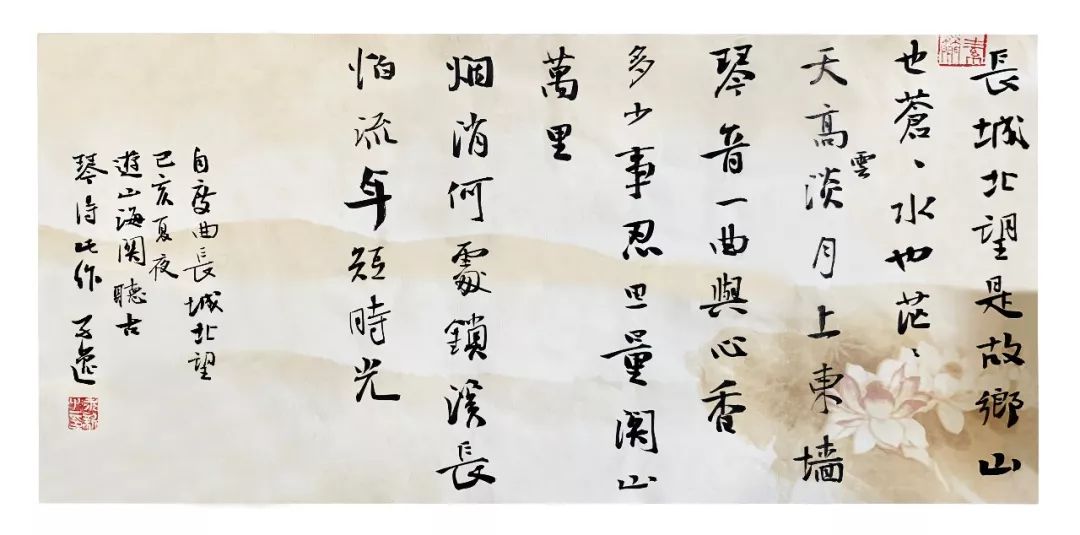 長城北望是故鄉山
也蒼、水也茫、
天高雲淡月上東墻
琴音一曲與心香
多少事忍思量関山
萬里
烟消何處鎖溪長
怕流年短時光
自度曲長城北望
己亥夏夜
遊山海関聽古
琴得此作